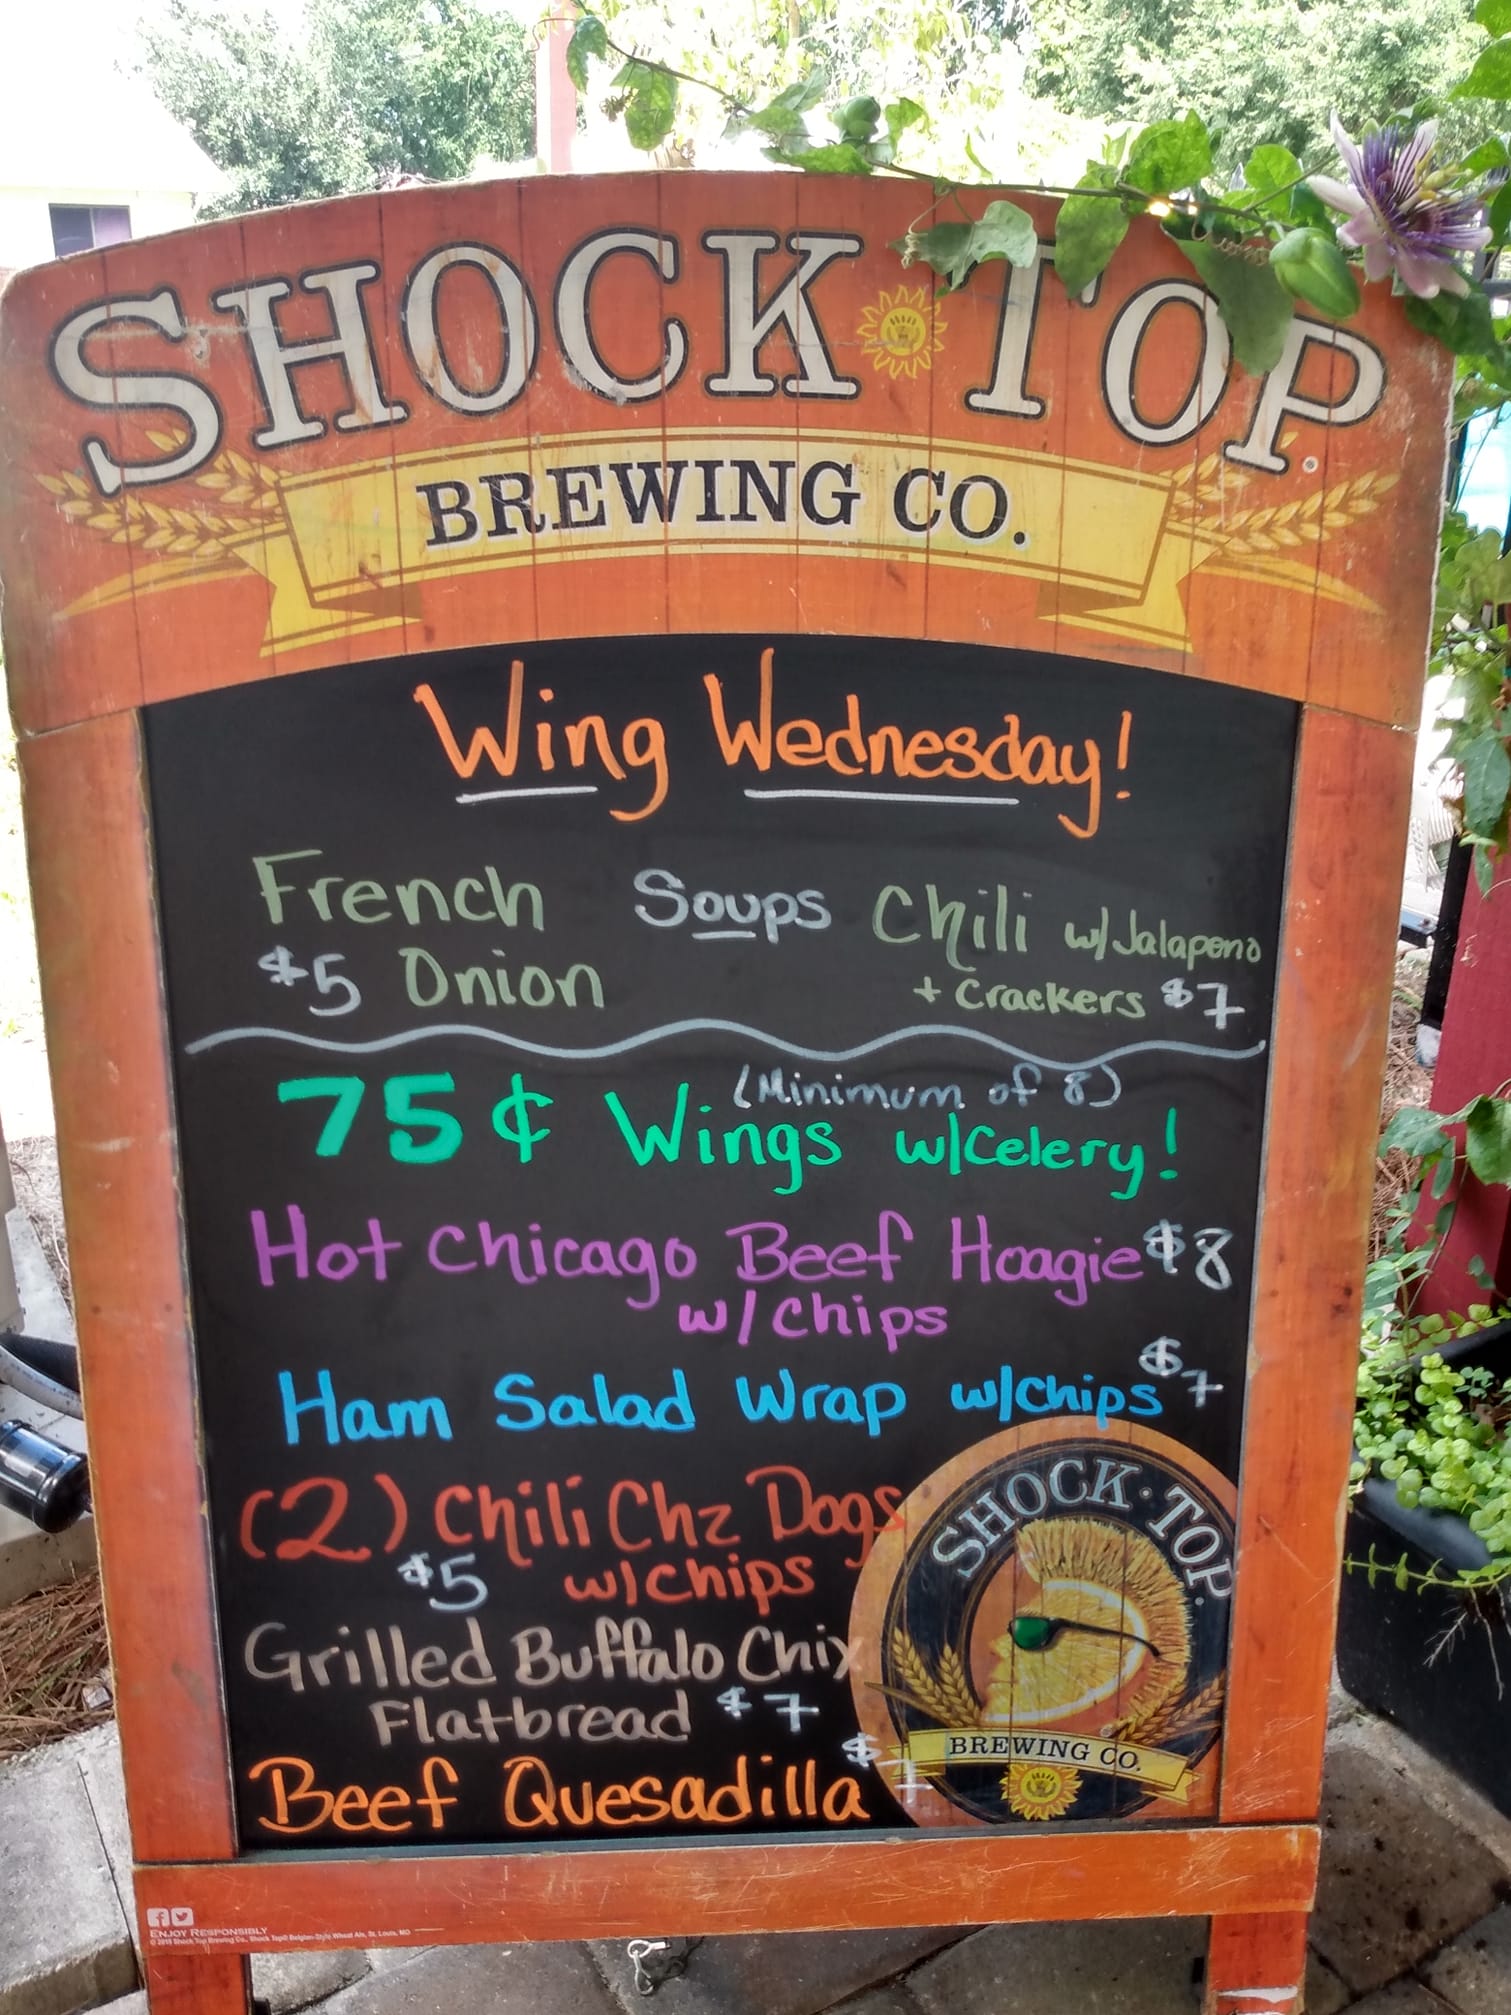 SHOCK TOP
BREWING CO.
Wing Wednesday!
Soups
French
$5 Onion
Chili w/Jalapeno
+ Crackers $7
(Minimum of 8)
75¢ Wings w/Celery!
Hot Chicago Beef Hoagie $8
w/Chips
Ham Salad Wrap w/Chips $7
(2) Chili Chz Dogs
$5 w/Chips
Grilled Buffalo Chix
Flatbread $7
Beef Quesadilla $7
SHOCK·TOP.
BREWING CO.
ENJOY RESPONSIBLY
© 2015 Shock Top Brewing Co., Shock Top® Belgian-Style Wheat Ale, St. Louis, MO